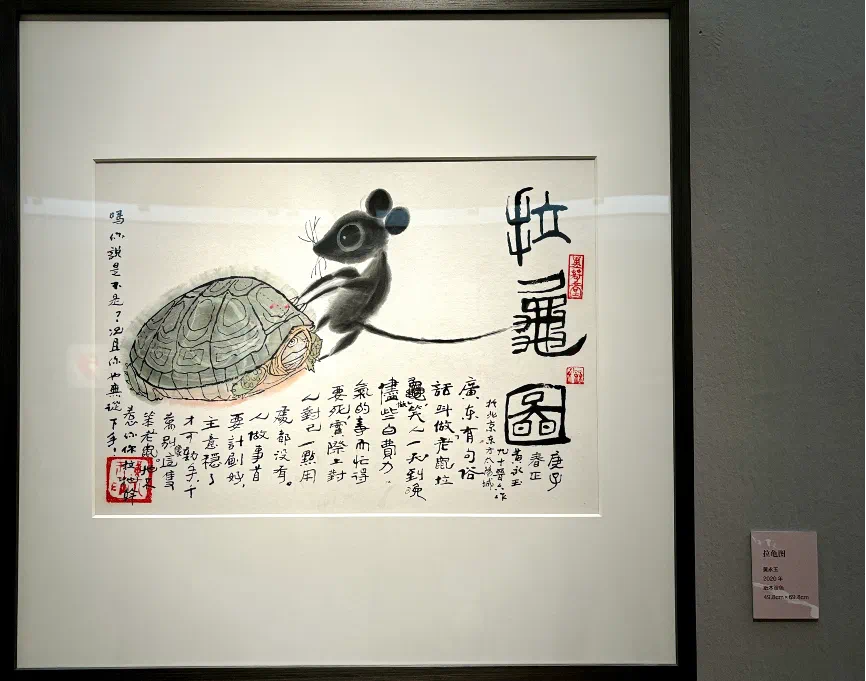 拉龜圖
庚子
春正
黃永玉
九十晉六作
於北京東方太陽城
廣东有句俗
話叫做老鼠拉
龜笑人一天到晚
儘做些白費力
氣的事而忙得
要死,實際上對
人對己一點用
處都沒有。
人做事首
要計劃妙,
主意穩了
才可動手,千
萬別學這隻
笨老鼠。
惹你你拉他幹
嗎你說是不是?况且你也無從下手!
拉龟图
黄永玉
2020 年
纸本设色
49.8cm×69.8cm